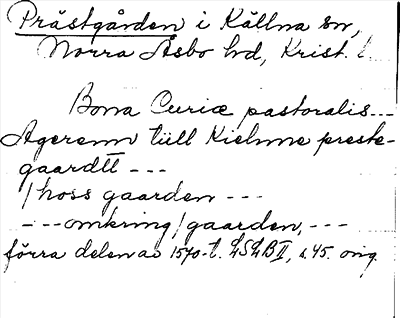 Prästgården i Källna sn,
Norra Åsbo hd, Krist. l.
Bona Curiæ pastoralis---
Ageremn tüll Kielnne preste-
gaardtt ---
/hoss gaarden ---
---omkring/gaarden, ---
förra delen av 1570-t. LSLB II, s. 45. orig.